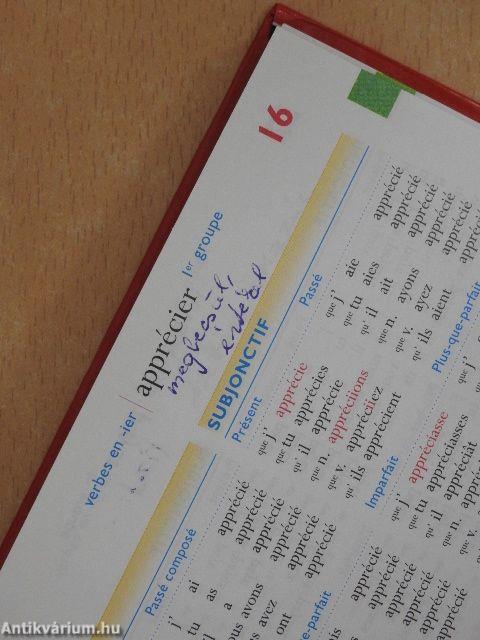 16
verbes en -ier | apprécier 1er groupe
megbecsül,
értékel
SUBJONCTIF
Passé composé
ai apprécié
as apprécié
a apprécié
avons apprécié
avez apprécié
ont apprécié
Présent
que j' apprécie
que tu apprécies
qu' il apprécie
que n. appréciions
que v. appréciiez
qu' ils apprécient
Passé
que j' aie apprécié
que tu aies apprécié
qu' il ait apprécié
que n. ayons apprécié
que v. ayez apprécié
qu' ils aient
Imparfait
que j' appréciasse
que tu appréciasses
qu' il appréciât
que n.
que v.
qu' ils
Plus-que-parfait
que j'
e-parfait
apprécié
apprécié
apprécié
apprécié
Antikvárium.hu